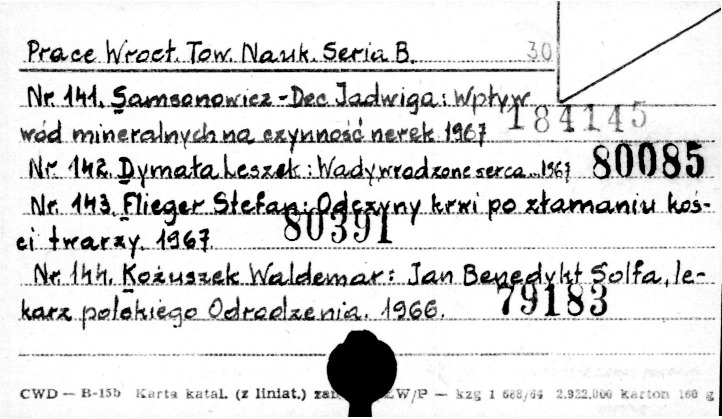 Prace Wrocł. Tow. Nauk. Seria B. 30
Nr 141. Samsonowicz-Dec Jadwiga: Wpływ
wód mineralnych na czynność nerek 1967 184145
Nr 142. Dymała Leszek: Wady wrodzone serca. 1967 80085
Nr 143. Flieger Stefan: Odczyny krwi po złamaniu koś-
ci twarzy. 1967. 80391
Nr 144. Kożuszek Waldemar: Jan Benedykt Solfa, le-
karz polskiego Odrodzenia. 1966. 79183
CWD — B-15b Karta katal. (z liniat.) W/P — kzg 1 668/64 2.922.000 karton 160 g